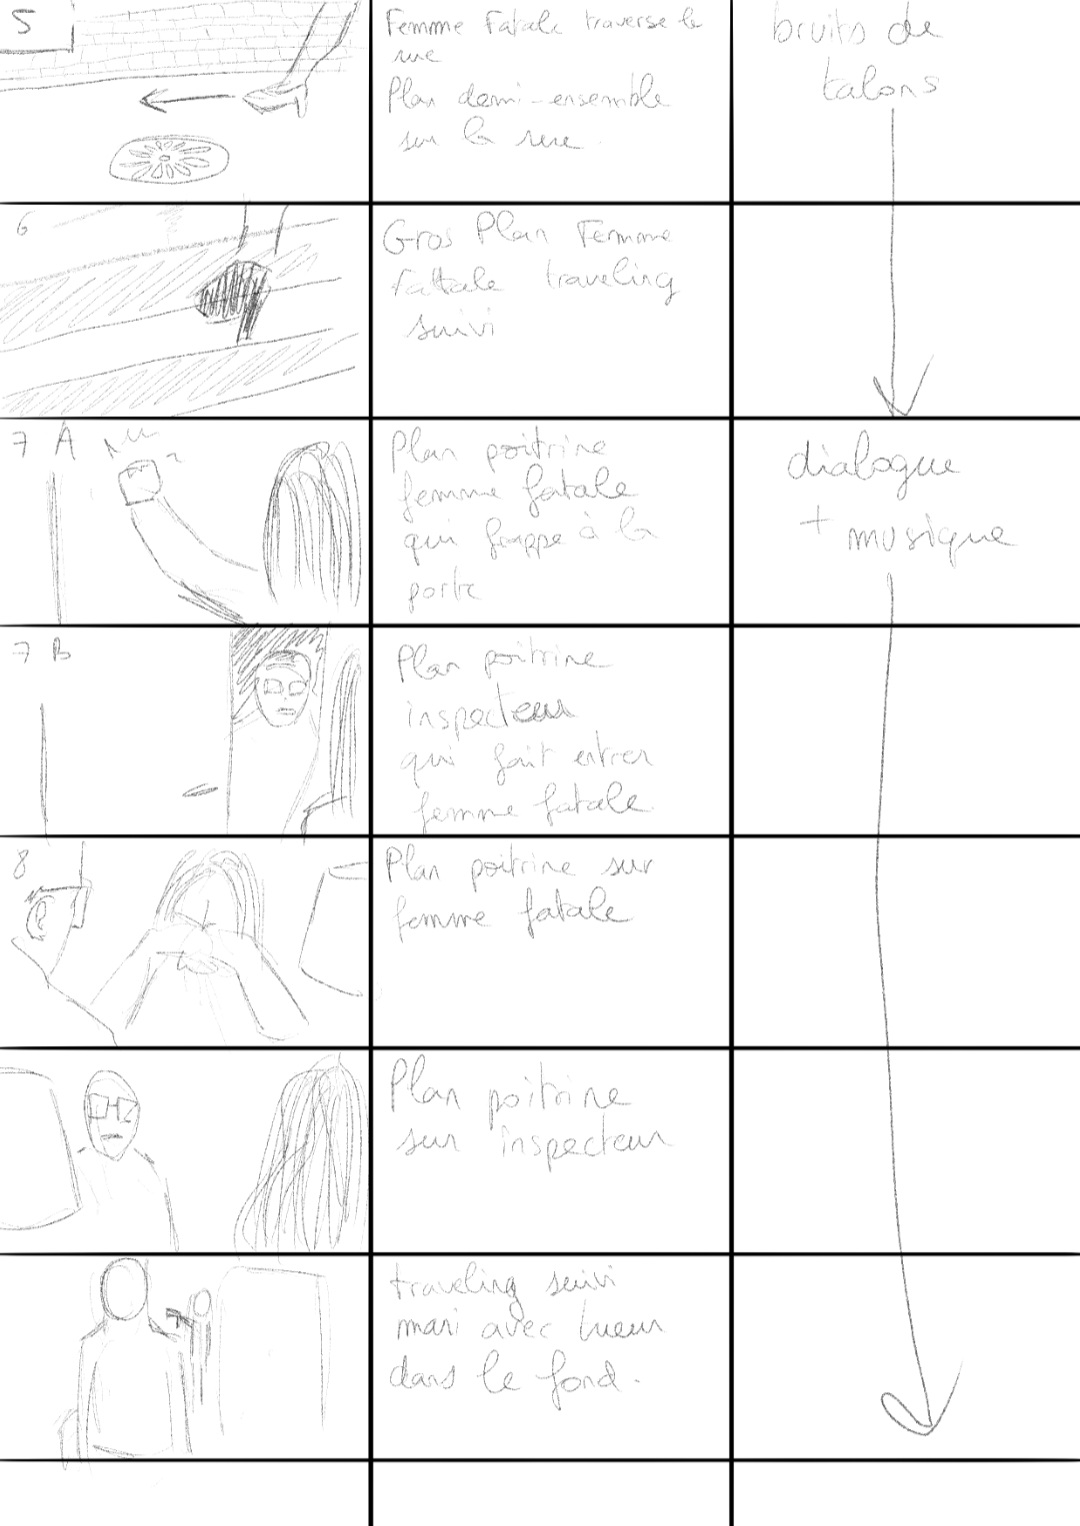 5
Femme Fatale traverse la
rue
Plan demi-ensemble
sur la rue.
bruits de
talons
6
Gros Plan Femme
fattale traveling
suivi
7 A
Plan poitrine
femme fatale
qui frappe à la
porte
dialogue
+ musique
7 B
Plan poitrine
inspecteur
qui fait entrer
femme fatale
8
Plan poitrine sur
femme fatale
Plan poitrine
sur inspecteur
traveling suivi
mari avec tueur
dans le fond.